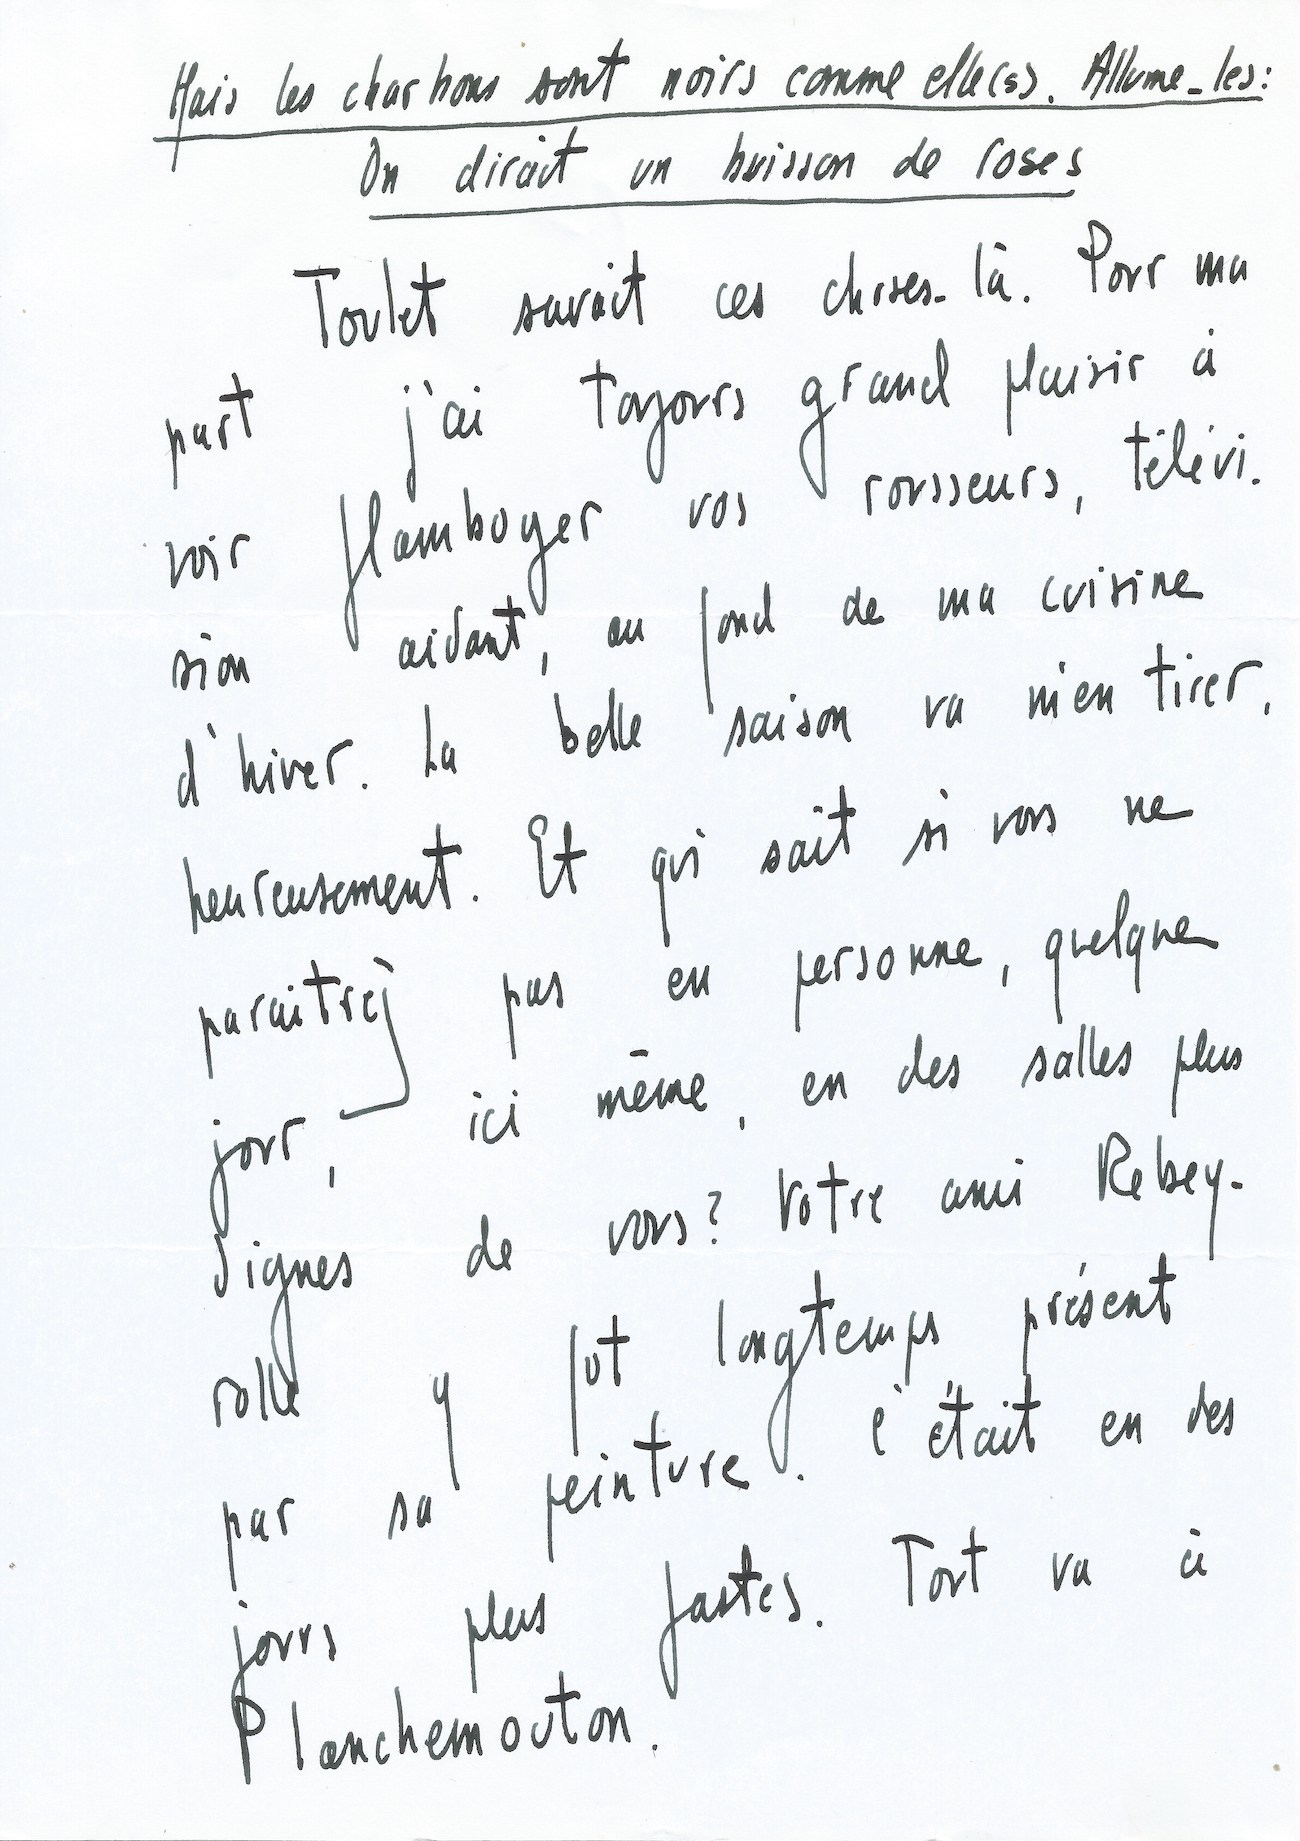 Mais les charbons sont noirs comme elle(s). Allume-les:
On dirait un buisson de roses
Toulet savait ces choses-là. Pour ma
part j'ai toujours grand plaisir à
voir flamboyer vos rousseurs, télévi-
sion aidant, au fond de ma cuisine
d'hiver. La belle saison va m'en tirer,
heureusement. Et qui sait si vous ne
paraîtrez pas en personne, quelque
jour, ici même, en des salles plus
dignes de vous? Votre ami Rebey-
rolle y fut longtemps présent
par sa peinture. C'était en des
jours plus fastes. Tout va à
Planchemouton.